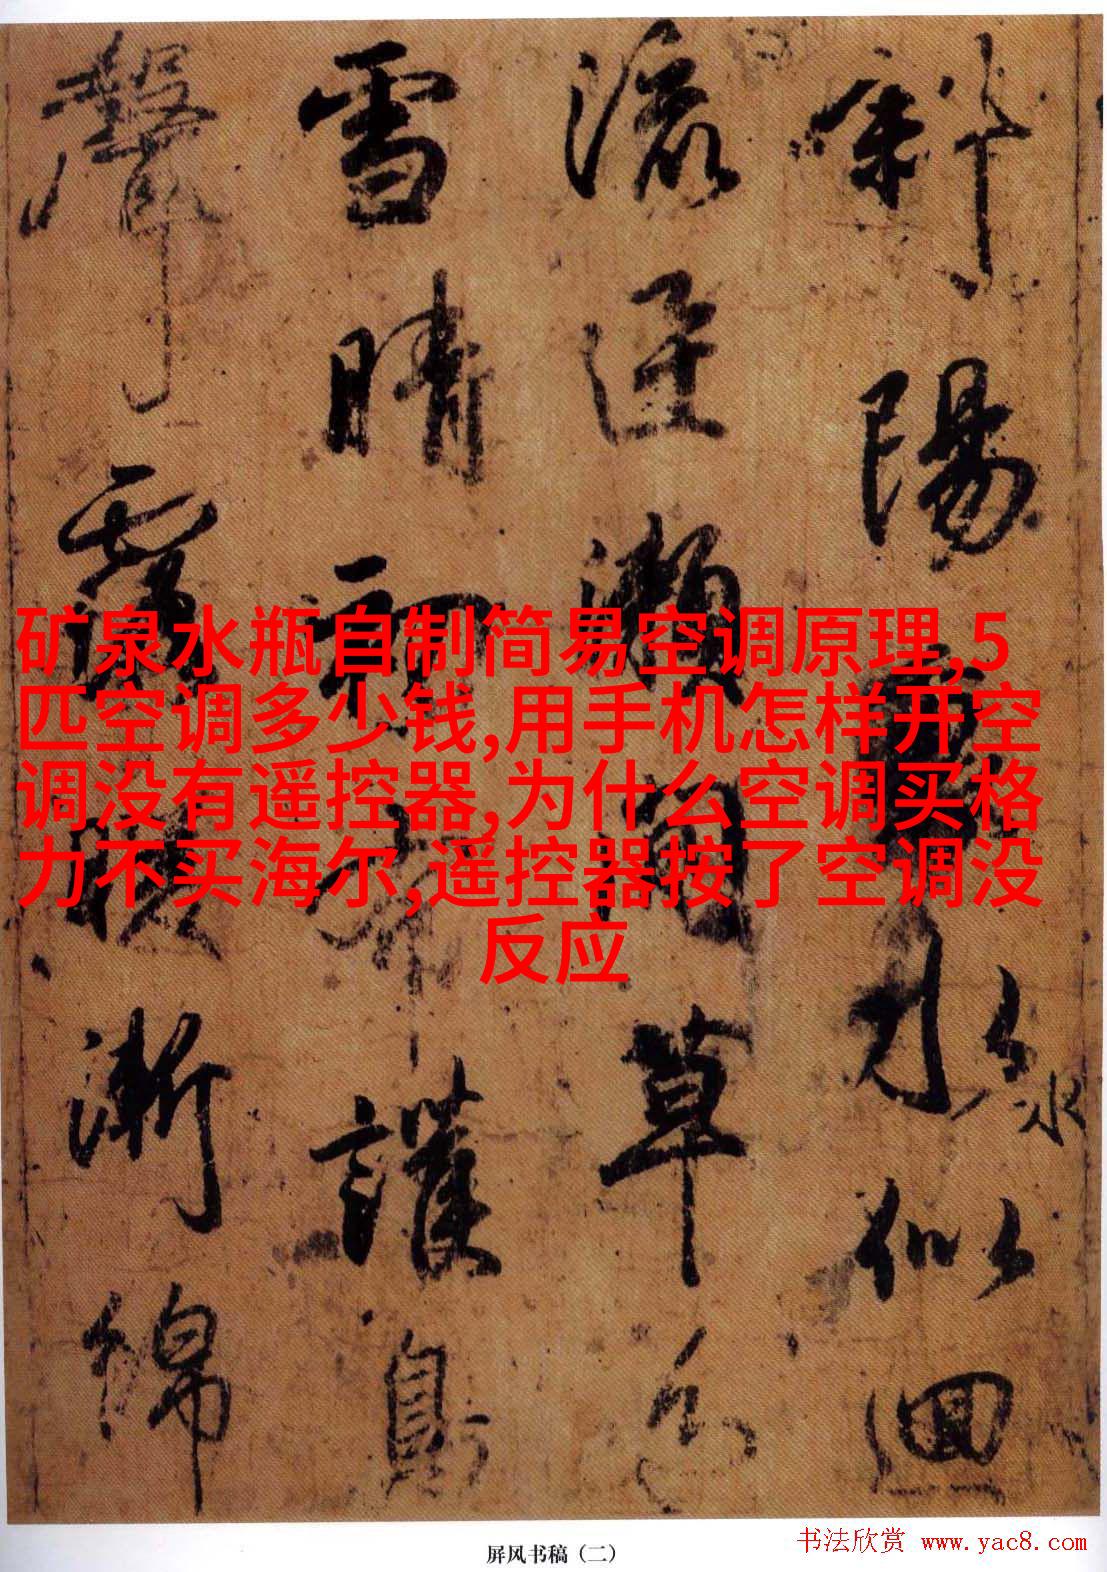 斜陽水似回
水
流瀬草
雪晴初護鳥
聲漸綿
矿泉水瓶自制简易空调原理,5
匹空调多少钱,用手机怎样开空
调没有遥控器,为什么空调买格
力不买海尔,遥控器按了空调没
反应
屏风书稿（二）
书法欣赏 www.yac8.com